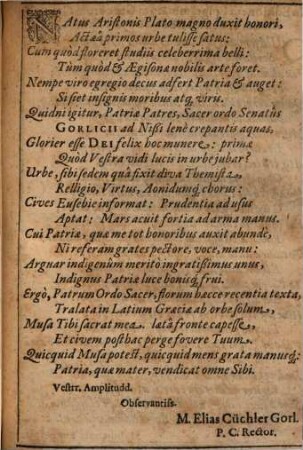 NAtus Aristonis Plato magno duxit honori,
Actæâ primos urbe tulisse satus:
Cum quòd floreret studiis celeberrima belli:
Tùm quòd & Ægisonæ nobilis arte foret.
Nempe viro egregio decus adfert Patria & auget:
Si sset insignis moribus atq; viris.
Quidni igitur, Patriæ Patres, Sacer ordo Senatûs
GORLICII ad Nissi lenè crepantis aquas,
Glorier esse DEI felix hoc munere: primæ
Quòd Vestra vidi lucis in urbe jubar?
Urbe, sibi sedem quâ fixit diva Themistæ,
Relligio, Virtus, Aonidumq; chorus:
Cives Eusebie informat: Prudentia ad usus
Aptat: Mars acuit fortia ad arma manus.
Cui Patriæ, quæ me tot honoribus auxit abundè,
Ni referam grates pectore, voce, manu:
Arguar indigenûm meritò ingratissimus unus,
Indignus Patriæ luce bonisq; frui.
Ergò, Patrum Ordo Sacer, florum hæcce recentia texta,
Tralata in Latium Græciæ ab orbe solum,
Musa Tibi sacrat mea. lætâ fronte capesse,
Et civem posthac perge fovere Tuum.
Quicquid Musa potest, quicquid mens grata manusq;:
Patria, quæ mater, vendicat omne Sibi.
Vestrr. Amplitudd.
Observantiss.
M. Elias Cüchler Gorl.
P. C. Rector.